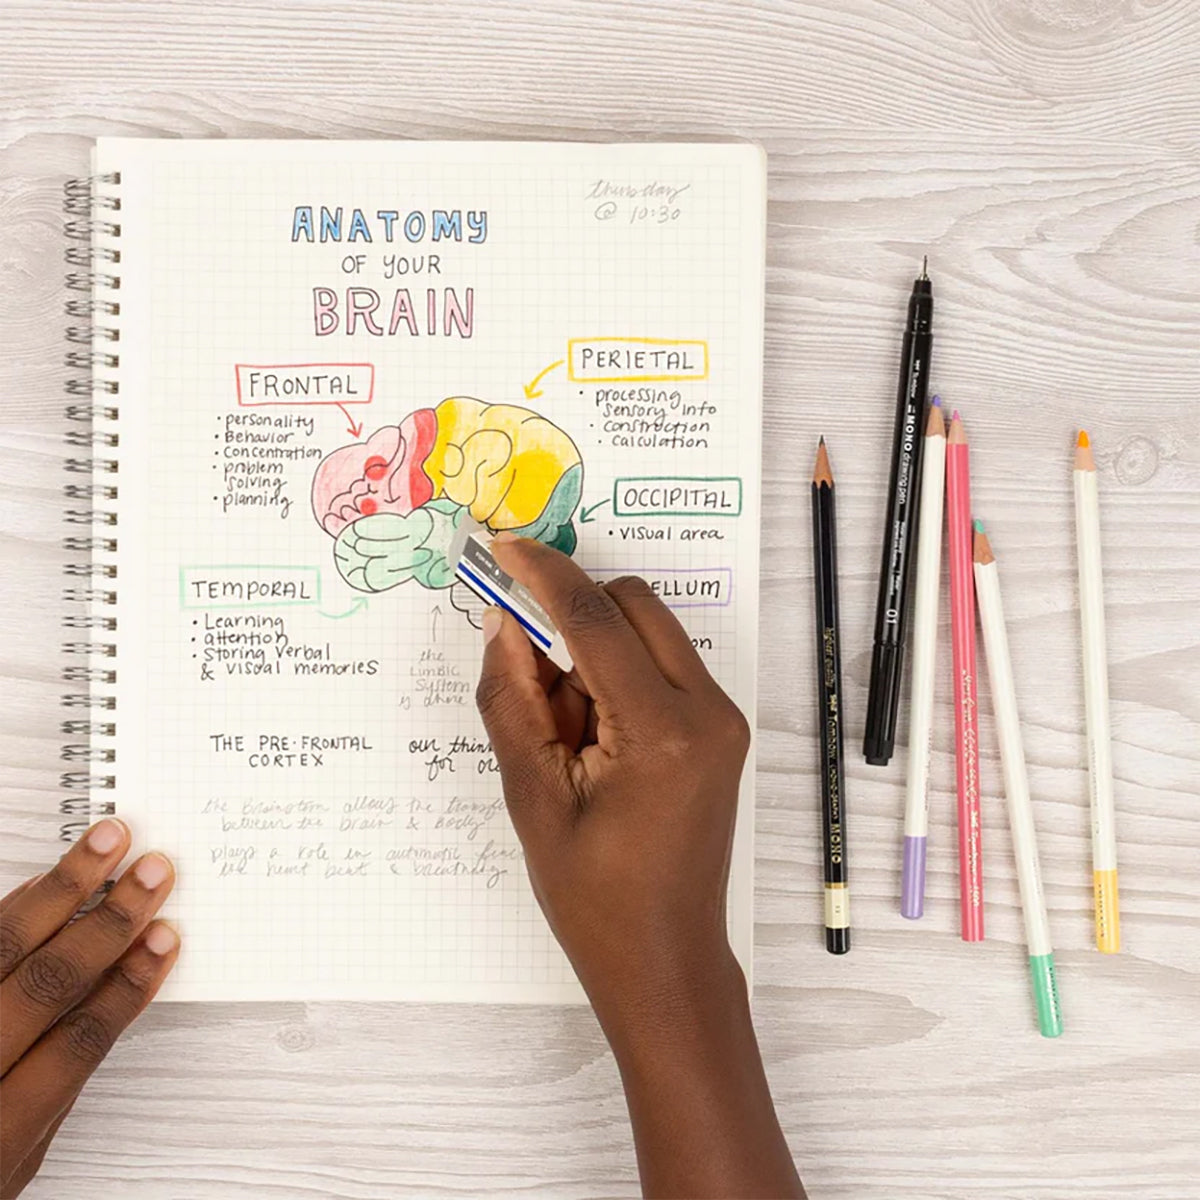 thursday
@ 10:30
ANATOMY
OF YOUR
BRAIN
FRONTAL
• personality
• Behavior
• concentration
• problem
solving
• planning
PERIETAL
• processing
sensory info
• construction
• calculation
OCCIPITAL
• visual area
ELLUM
on
TEMPORAL
• Learning
• attention
• storing verbal
& visual memories
the
LimBic
System
is there
THE PRE-FRONTAL
CORTEX
our thin
for
the Brainstem allows the transfe
between the brain & Body
plays a role in automatic func
like heart beat & breathing
MONO drawing pen
01
Tombow MONO